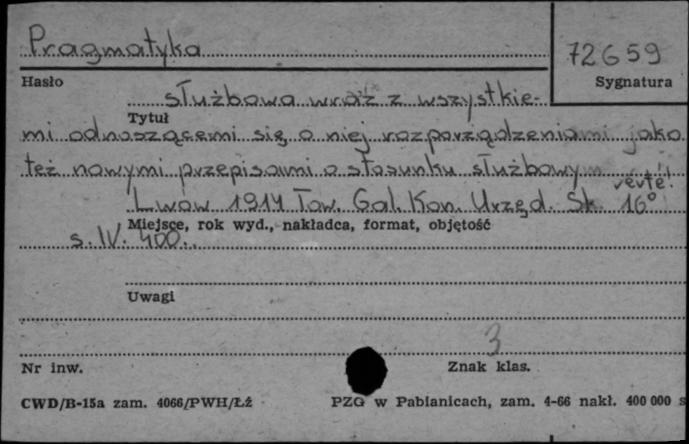 Pragmatyka
72659
Hasło
Sygnatura
służbowa wraz z wszystkie-
Tytuł
mi odnoszącemi się o niej rozporządzeniami jako
też nowymi przepisami o stosunku służbowym
verte!
Lwów 1914 Tow. Gal. Kon. Urzęd. Sk. 16°
Miejsce, rok wyd., nakładca, format, objętość
s. IV. 400.
Uwagi
3
Nr inw.
Znak klas.
CWD/B-15a zam. 4066/PWH/Łź
PZG w Pabianicach, zam. 4-66 nakł. 400 000 s